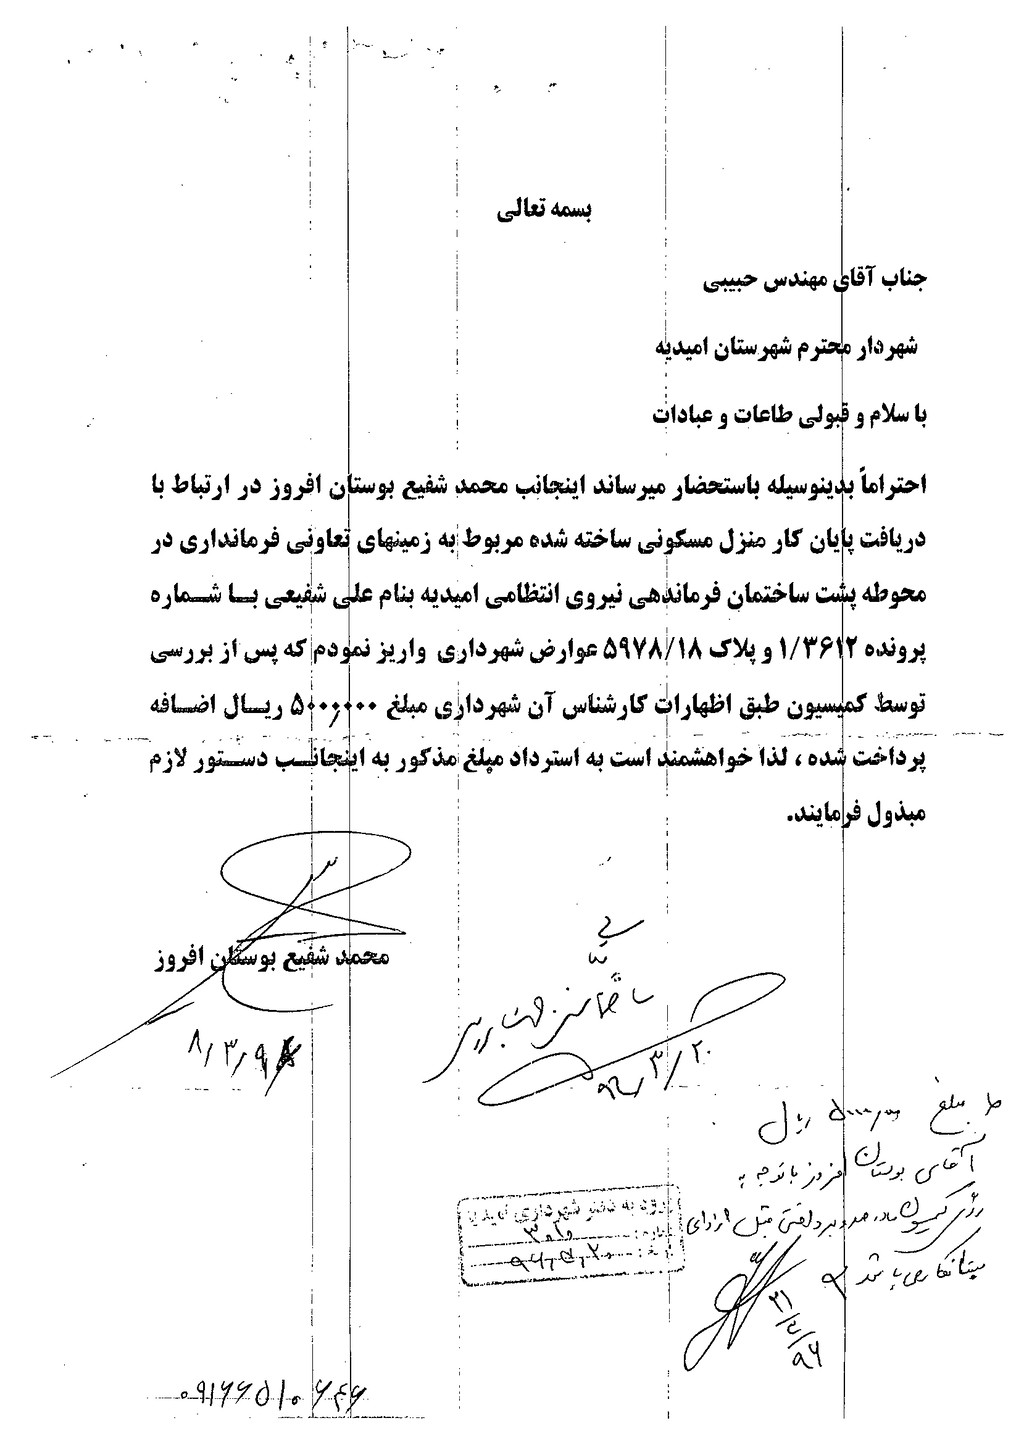 بسمه تعالی
جناب آقای مهندس حبیبی
شهردار محترم شهرستان امیدیه
با سلام و قبولی طاعات و عبادات
احتراماً بدینوسیله باستحضار میرساند اینجانب محمد شفیع بوستان افروز در ارتباط با
دریافت پایان کار منزل مسکونی ساخته شده مربوط به زمینهای تعاونی فرمانداری در
محوطه پشت ساختمان فرماندهی نیروی انتظامی امیدیه بنام علی شفیعی بــا شــماره
پرونده ۱/۳۶۱۲ و پلاک ۵۹۷۸/۱۸ عوارض شهرداری واریز نمودم که پس از بررسی
توسط کمیسیون طبق اظهارات کارشناس آن شهرداری مبلغ ۵۰۰۰,۰۰۰ ریــال اضــافه
پرداخت شده ، لذا خواهشمند است به استرداد مبلغ مذکور به اینجانــب دســتور لازم
مبذول فرمایند.
محمد شفیع بوستان افروز
۹۶/۳/۲۰
مبلغ ریال
آقای بوستان افروز با توجه به
رأی کمیسیون ماده صد
می باشد
ورود به دفتر شهرداری امیدیه
۰۹۱۶۶۵۱۰۶۴۶